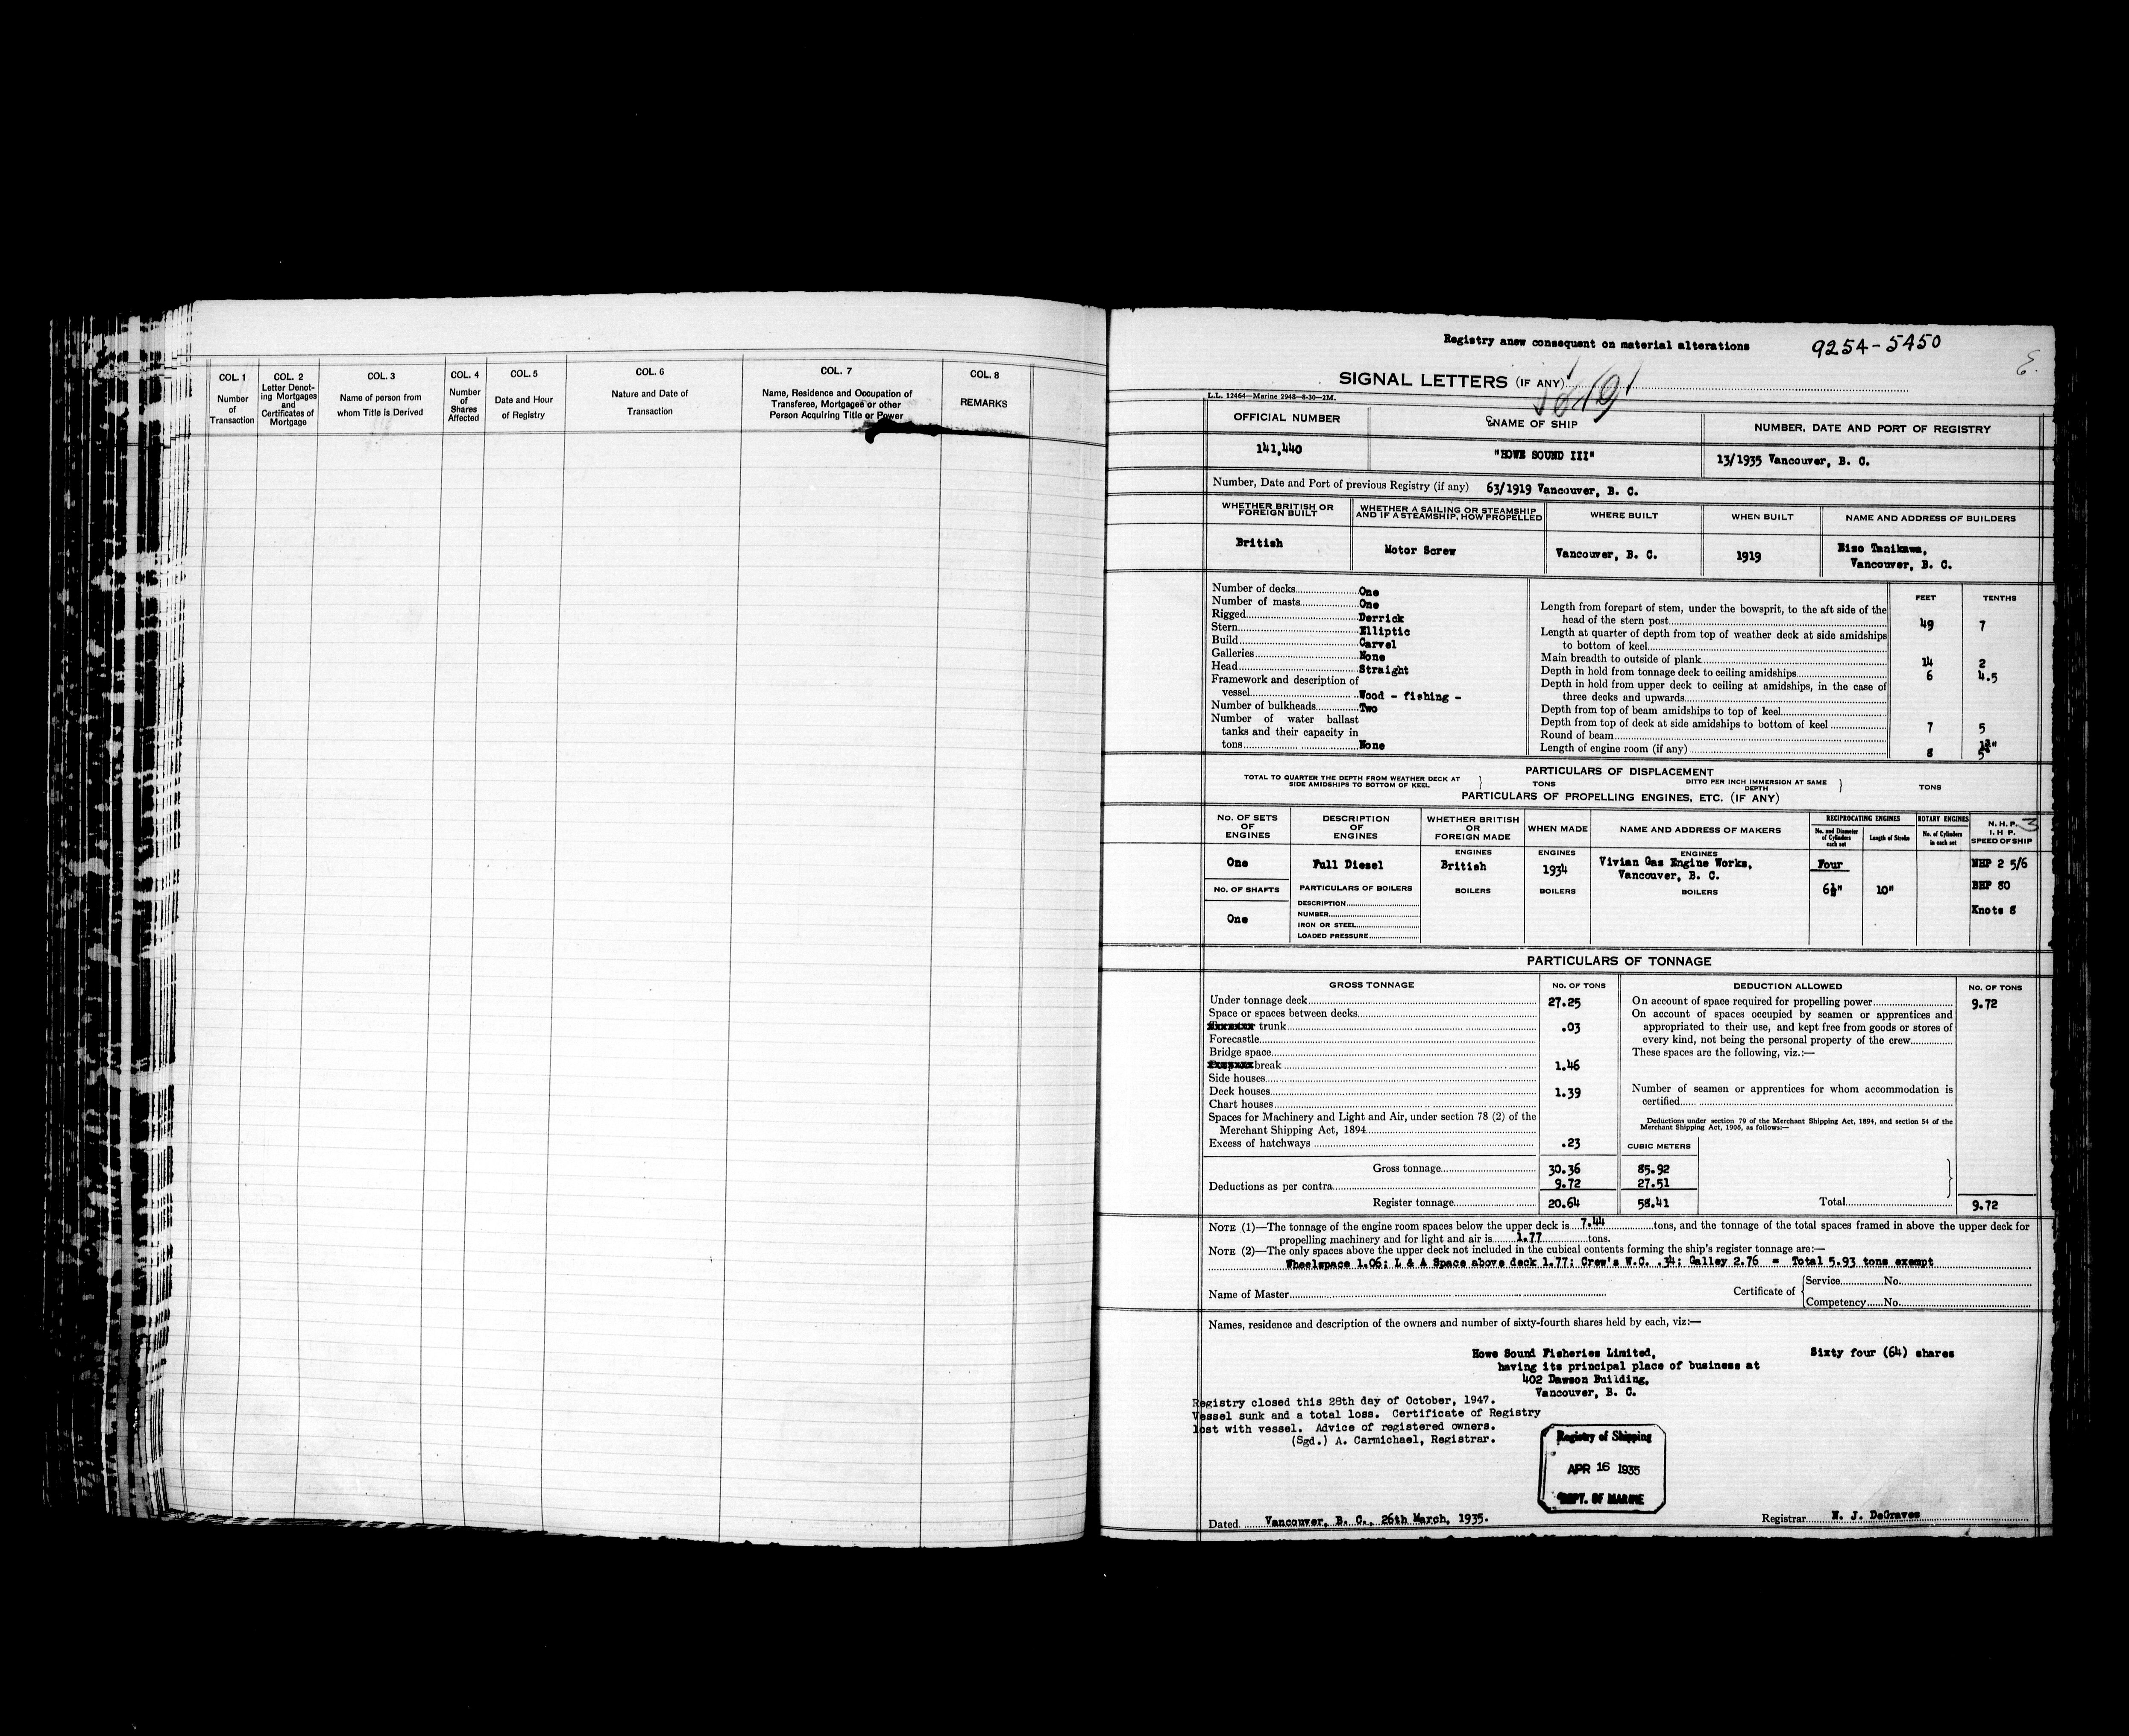 COL. 1
Number
of
Transaction
COL. 2
Letter Denot-
ing Mortgages
and
Certificates of
Mortgage
COL. 3
Name of person from
whom Title is Derived
COL. 4
Number
of
Shares
Affected
COL. 5
Date and Hour
of Registry
COL. 6
Nature and Date of
Transaction
COL. 7
Name, Residence and Occupation of
Transferee, Mortgagee or other
Person Acquiring Title or Power
COL. 8
REMARKS
Registry anew consequent on material alterations
9254-5450
SIGNAL LETTERS (IF ANY)
L.L. 12464—Marine 2948—8-30—2M.
OFFICIAL NUMBER
NAME OF SHIP
NUMBER, DATE AND PORT OF REGISTRY
141,440
"HOWE SOUND III"
13/1935 Vancouver, B. C.
Number, Date and Port of previous Registry (if any) 63/1919 Vancouver, B. C.
WHETHER BRITISH OR
FOREIGN BUILT
WHETHER A SAILING OR STEAMSHIP
AND IF A STEAMSHIP, HOW PROPELLED
WHERE BUILT
WHEN BUILT
NAME AND ADDRESS OF BUILDERS
British
Motor Screw
Vancouver, B. C.
1919
Tanikawa,
Vancouver, B. C.
Number of decks One
Number of masts One
Rigged Derrick
Stern Elliptic
Build Carvel
Galleries None
Head Straight
Framework and description of
vessel Wood - fishing -
Number of bulkheads Two
Number of water ballast
tanks and their capacity in
tons None
FEET TENTHS
Length from forepart of stem, under the bowsprit, to the aft side of the
head of the stern post 49 7
Length at quarter of depth from top of weather deck at side amidships
to bottom of keel
Main breadth to outside of plank 14 2
Depth in hold from tonnage deck to ceiling amidships 6 4.5
Depth in hold from upper deck to ceiling at amidships, in the case of
three decks and upwards
Depth from top of beam amidships to top of keel
Depth from top of deck at side amidships to bottom of keel 7 5
Round of beam
Length of engine room (if any) 8 5
PARTICULARS OF DISPLACEMENT
TOTAL TO QUARTER THE DEPTH FROM WEATHER DECK AT
SIDE AMIDSHIPS TO BOTTOM OF KEEL.
TONS
DITTO PER INCH IMMERSION AT SAME
DEPTH
TONS
PARTICULARS OF PROPELLING ENGINES, ETC. (IF ANY)
No. OF SETS
OF
ENGINES
DESCRIPTION
OF
ENGINES
WHETHER BRITISH
OR
FOREIGN MADE
WHEN MADE
NAME AND ADDRESS OF MAKERS
RECIPROCATING ENGINES
No. and Diameter
of Cylinders
each set
Length of Stroke
ROTARY ENGINES
No. of Cylinders
in each set
N. H. P. 3
I. H. P.
SPEED OF SHIP
One
Full Diesel
ENGINES
British
ENGINES
1934
ENGINES
Vivian Gas Engine Works,
Vancouver, B. C.
Four
NHP 2 5/6
No. OF SHAFTS
PARTICULARS OF BOILERS
BOILERS
BOILERS
BOILERS
6½"
10"
BHP 80
One
DESCRIPTION
NUMBER
IRON OR STEEL
LOADED PRESSURE
Knots 8
PARTICULARS OF TONNAGE
GROSS TONNAGE
NO. OF TONS
Under tonnage deck 27.25
Space or spaces between decks
trunk .03
Forecastle
Bridge space
break 1.46
Side houses
Deck houses 1.39
Chart houses
Spaces for Machinery and Light and Air, under section 78 (2) of the
Merchant Shipping Act, 1894
Excess of hatchways .23
CUBIC METERS
Gross tonnage 30.36 85.92
Deductions as per contra 9.72 27.51
Register tonnage 20.64 58.41
DEDUCTION ALLOWED
NO. OF TONS
On account of space required for propelling power 9.72
On account of spaces occupied by seamen or apprentices and
appropriated to their use, and kept free from goods or stores of
every kind, not being the personal property of the crew
These spaces are the following, viz.:—
Number of seamen or apprentices for whom accommodation is
certified
Deductions under section 79 of the Merchant Shipping Act, 1894, and section 54 of the
Merchant Shipping Act, 1906, as follows:—
Total 9.72
NOTE (1)—The tonnage of the engine room spaces below the upper deck is 7.44 tons, and the tonnage of the total spaces framed in above the upper deck for
propelling machinery and for light and air is 1.77 tons.
NOTE (2)—The only spaces above the upper deck not included in the cubical contents forming the ship's register tonnage are:—
Wheelspace 1.06; L & A Space above deck 1.77; Crew's W.C. .34; Galley 2.76 = Total 5.93 tons exempt
Name of Master
Certificate of
Service No.
Competency No.
Names, residence and description of the owners and number of sixty-fourth shares held by each, viz:—
Howe Sound Fisheries Limited, Sixty four (64) shares
having its principal place of business at
402 Dawson Building,
Vancouver, B. C.
Registry closed this 28th day of October, 1947.
Vessel sunk and a total loss. Certificate of Registry
lost with vessel. Advice of registered owners.
(Sgd.) A. Carmichael, Registrar.
Registry of Shipping
APR 16 1935
DEPT. OF MARINE
Dated Vancouver, B. C., 26th March, 1935.
Registrar N. J. DeGraves